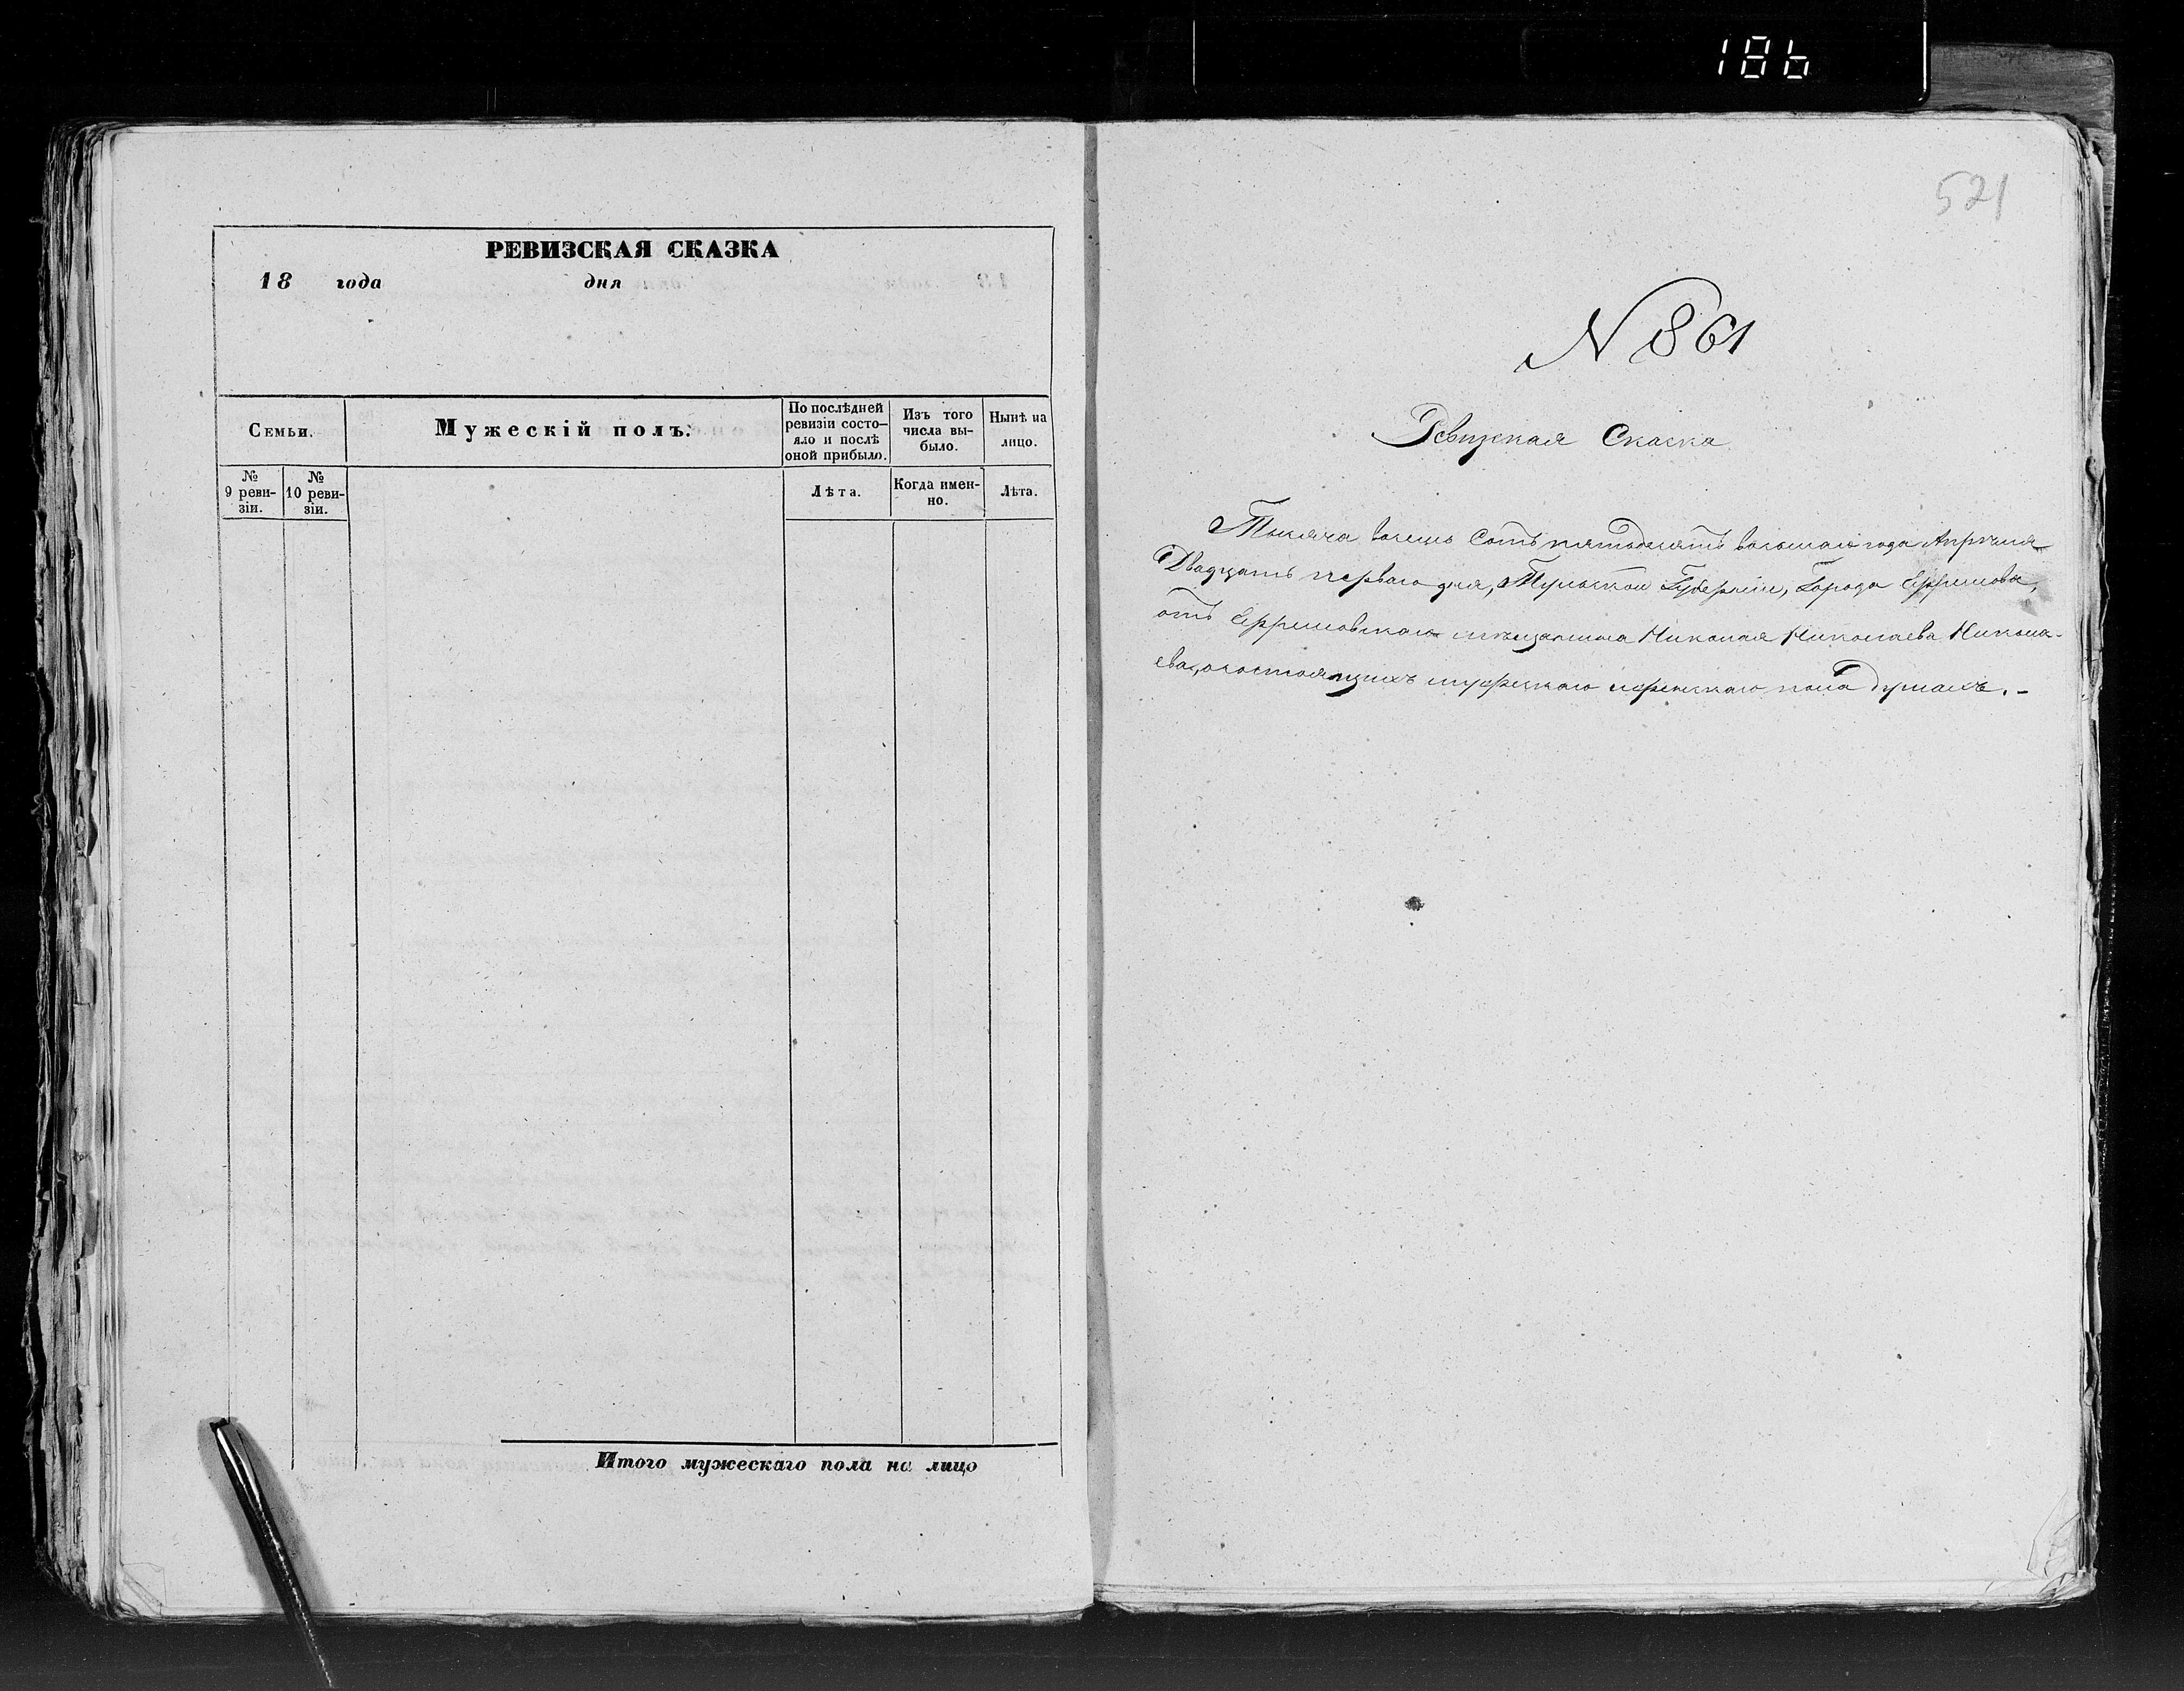 186
РЕВИЗСКАЯ СКАЗКА
18 года дня
Семьи.
Мужескій полъ.
По послѣдней
ревизіи состо-
яло и послѣ
оной прибыло.
Изъ того
числа вы-
было.
Нынѣ на
лицо.
№
9 реви-
зіи.
№
10 реви-
зіи.
Лѣта.
Когда имен-
но.
Лѣта.
Итого мужескаго пола на лицо
521
N 861
Ревизская Скаска
Тысяча восемь сотъ пятьдесятъ восьмаго года Апрѣля
Двадцать перваго дня, Тульской Губерніи, Города Ефремова,
отъ Ефремовскаго мѣщанина Николая Николаева Никола-
ева, о состоящихъ мужескаго и женскаго пола душахъ. -